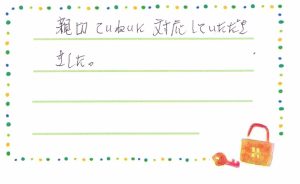 親切ていねいに対応していただき
ました。